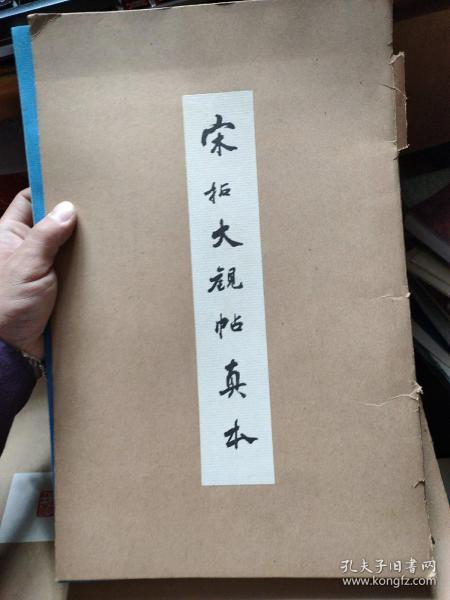 宋拓大観帖真本
孔夫子旧书网
www.kongfz.com